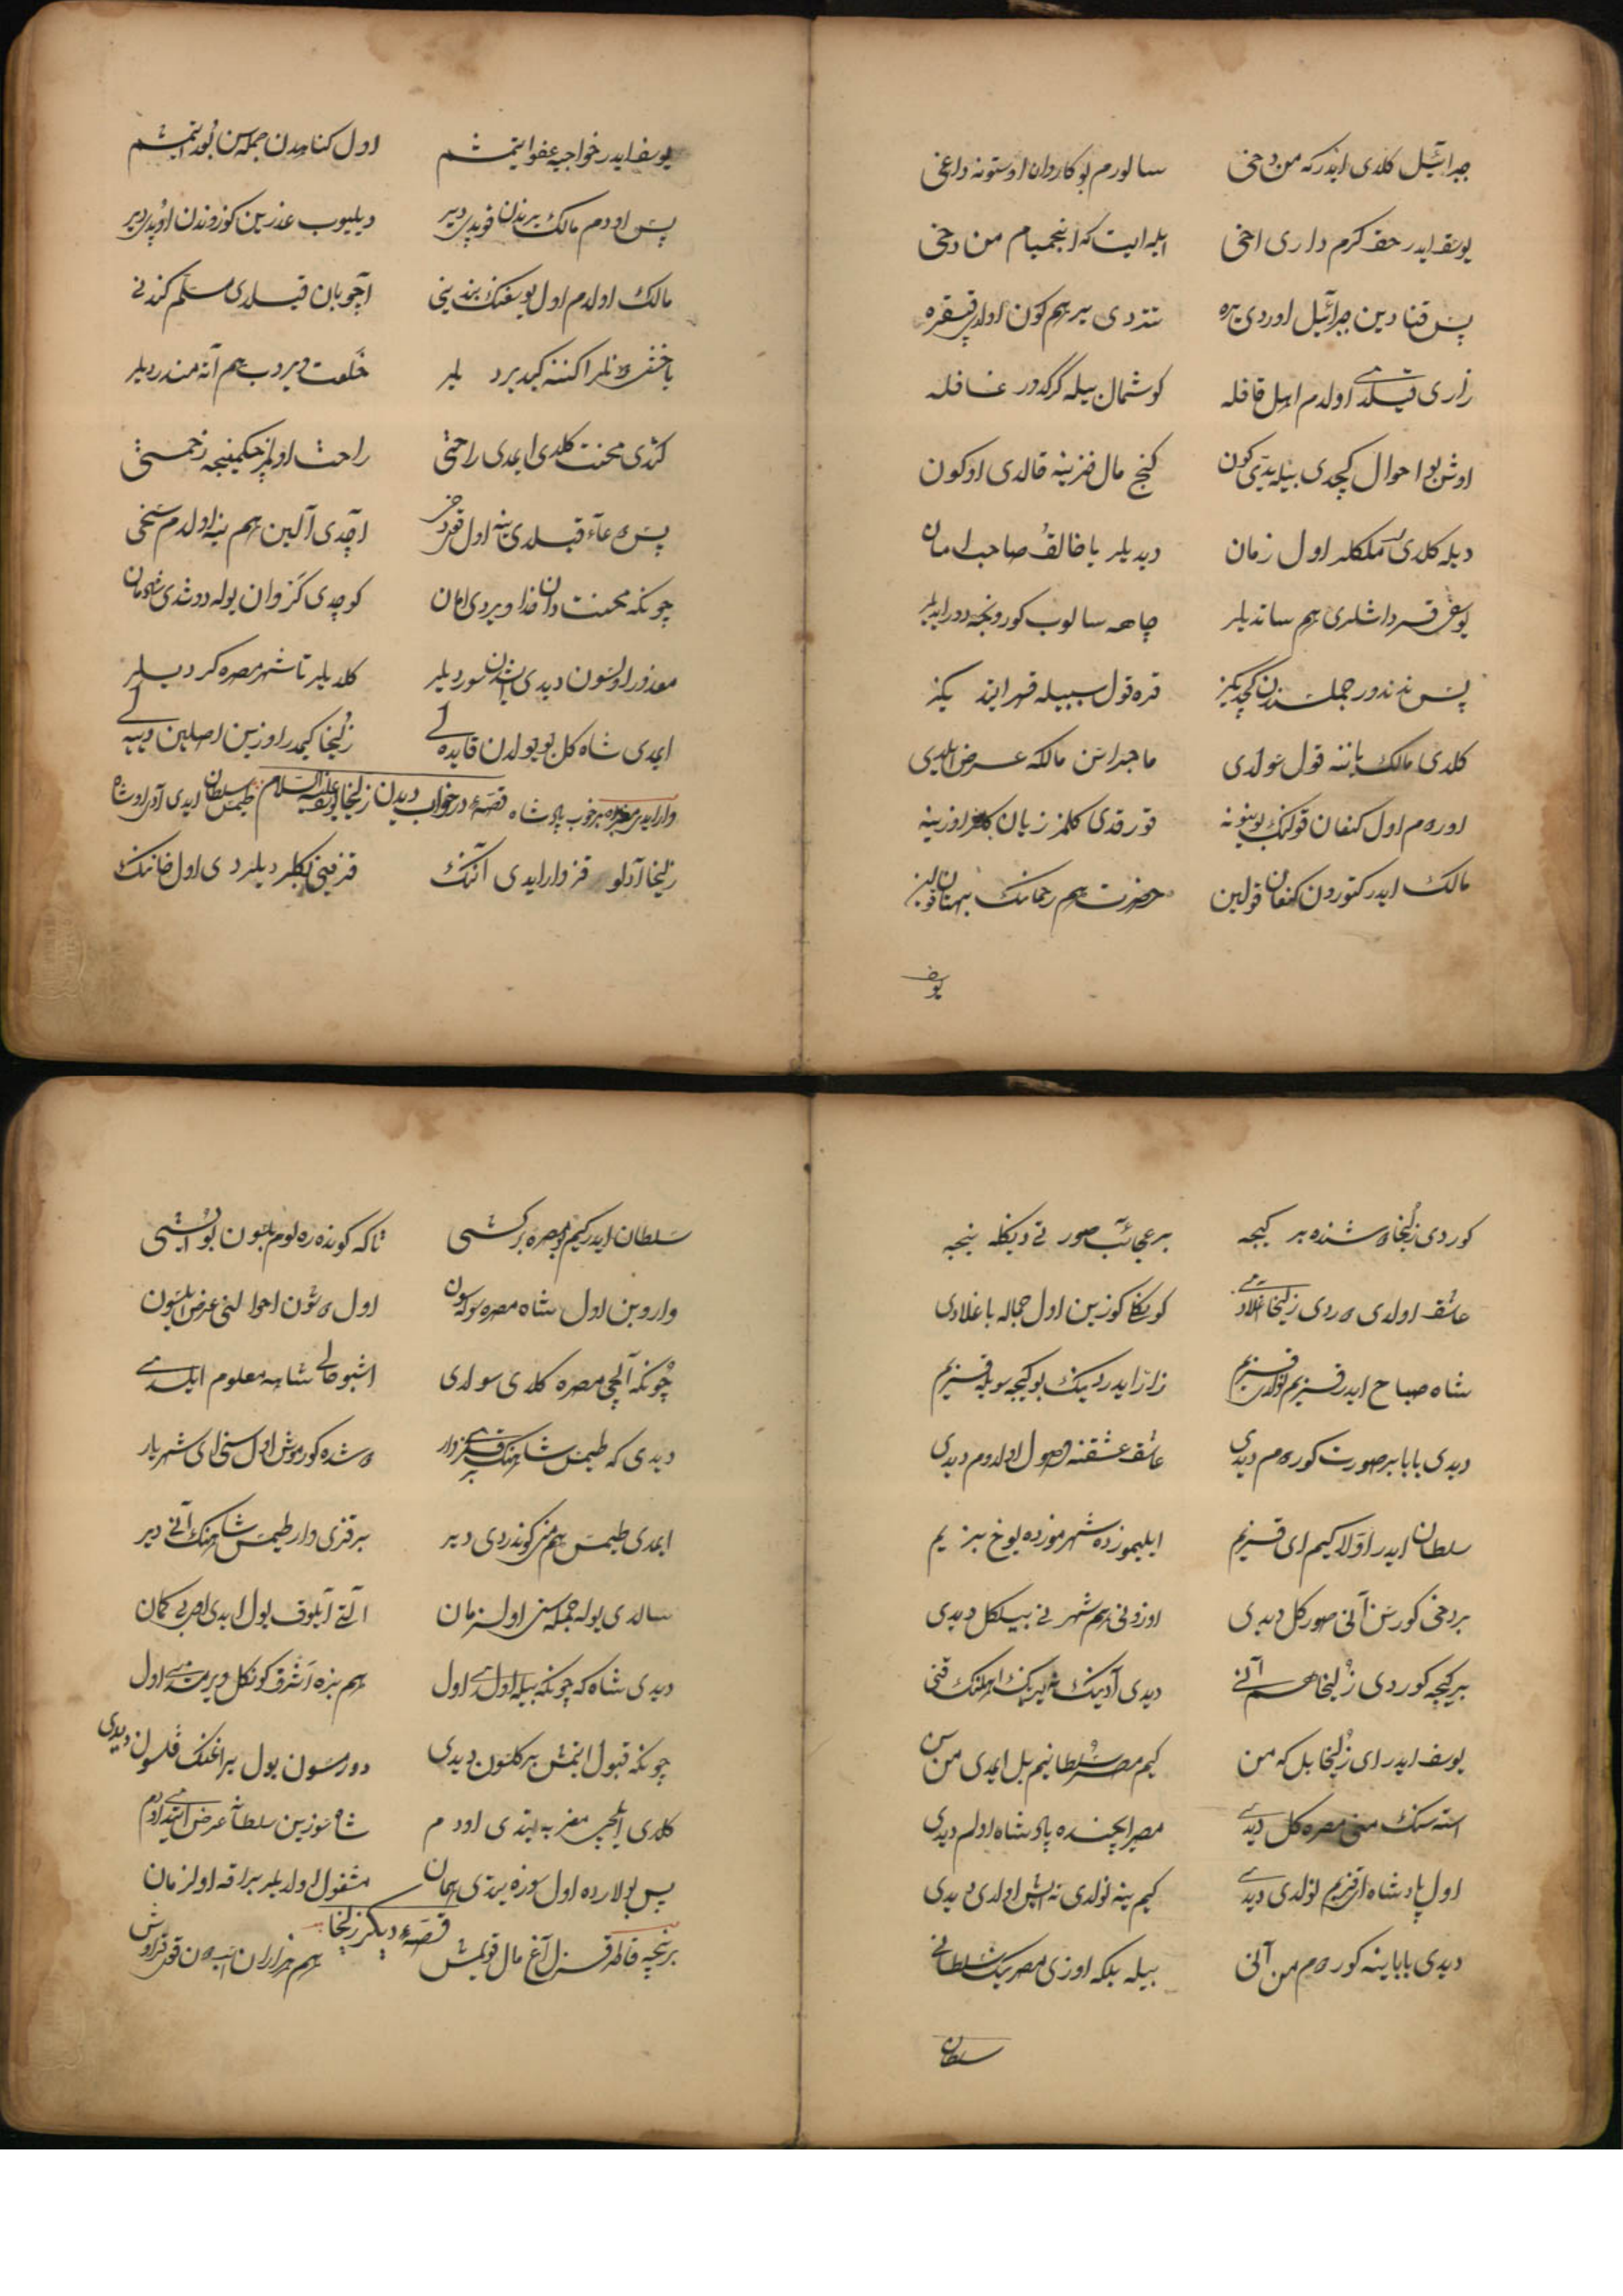 جبرائیل کلدی ایدر که من دخی سالورم بو کاروان اوستونه داغی
یوسف ایدر حق کرم داری اخی ایله ایت که اینجمیام من دخی
پس قنادین جبرائیل اوردی یره تتردی یر هم کون اولدی قپقره
زاری قیلدی اولدم اهل قافله کوشمال بیله کرکدور غافله
اوش بو احوال کچدی بیله یدی کون کنج مال خزینه قالدی او کون
دیله کلدی ملکلر اول زمان دیدیلر یا خالق صاحب امان
یوسفی قرداشلری هم ساتدیلر چاهه سالوب کورونجه دورایدیلر
پس نه ندور جمله سندن کچدیکز قره قول سببیله قهر ایدیکز
کلدی مالک یاننه قول سولدی ماجراسن مالکه عرض ایلدی
اوردم اول کنعان قولنک بوینونه قورقدی کلمز زیان اوزینه
مالک ایدر کتوردن کنعان قولین حضرت هم رحمانک
یوسف
یوسف ایدر خواجه عفو ایتمشم اول کناهدن جمله سن بود ایتمشم
پس اودم مالک یرندن قوپدی دیر دیلیوب عذرین کوزوندن اوپدی دیر
مالک اولدم اول یوسفنک بندینی آچوبان قیلدی مسلم کندنی
یاخشی طونلر اکننه کیدیردیلر خلعت ویردب هم آته مندردیلر
کتدی محنت کلدی ایمدی راحتی راحت اولمز چکمینجه زحمتی
پس دعاء قیلدی ینه اول آچدی آلین هم ینه اولدم سخی
چونکه محنتدن خدا ویردی امان کوچدی کروان یوله دوشدی شادمان
معذور اولسون دیدی سوردیلر کلدیلر تا شهر مصره کردیلر
ایمدی شاه کل بو یولدن قایده لی زلیخا کیمدر اوزین اصلین دییه لی
قصهٔ در خواب دیدن زلیخا یوسف علیه السلام
وار ایدی مغربده بر خوب پادشاه طیمس سلطان ایدی آدی اوشاه
زلیخا آدلو قزی وار ایدی آننک قزغینی بکلر دیلردی اول خاننک
کوردی زلیخا دوشنده بر کیجه بر عجائب صورتی دیکله نیجه
عاشق اولدی دوردی زلیخا آغلادی کونکلی کوزین اول جماله باغلادی
شاه صباح ایدر قزیم نولدی قزیم زار زار ایدردینک بو کیجه سویله قزیم
دیدی بابا بر صورت کوردم دیدی عاشق عشقنه وصول اولدوم دیدی
سلطان ایدر اولا کیم ای قزیم ایلیموزده شهرموزده یوخ بنزیم
بر دخی کورسن آنی صور کل دیدی اوزونی هم شهرنی بیلکل دیدی
بر کیجه کوردی زلیخا هم آنی دیدی آدینک نه یرینک اهلنک قنی
یوسف ایدر ای زلیخا بل که من کیم مصر سلطانیم بل ایمدی من سن
استه سنک منی مصره کل دیدی مصر ایچنده پادشاه اولم دیدی
اول پادشاه ایدر قزیم نولدی دیدی کیم ینه نولدی نه ایش اولدی دیدی
دیدی بابا ینه کوردم من آنی بیله بلکه اوزی مصرینک سلطانی
سلطان
سلطان ایدر کیم بو مصره بر کشی تا که کوندره لوم بلسون بو ایشی
واروبن اول شاه مصره سولسون اول دوشون احوالنی عرض ایلسون
چونکه آلچی مصره کلدی سولدی اشبو حالی شاهه معلوم ایلدی
دیدی که طیمس شاهنک بر قزی وار دوشده کورموش اول سنی ای شهریار
ایمدی طیمس هم منی کوندردی دیر بر قزی وار طیمس شاهنک آنی دیر
سالدی یوله جمله سنی اول زمان آلتی آیلوق یول ایدی اول بی کمان
دیدی شاه که چونکه بیله اولدی اول هم بزه اشرف کونکل ویرمدی اول
چونکه قبول ایتمش بر کلسون دیدی دورمسون یول یراغنک قلسون دیدی
کلدی ایلچی مغربه یتدی اودم شاه سوزین سلطانه عرض ایتدی اودم
پس بولارده اول سوزه یتدی همان مشغول اولدیلر یراقه اول زمان
قصهٔ دیکر زلیخا
بر نیچه قاطر قزل آغ مال قویمش هم هزاران